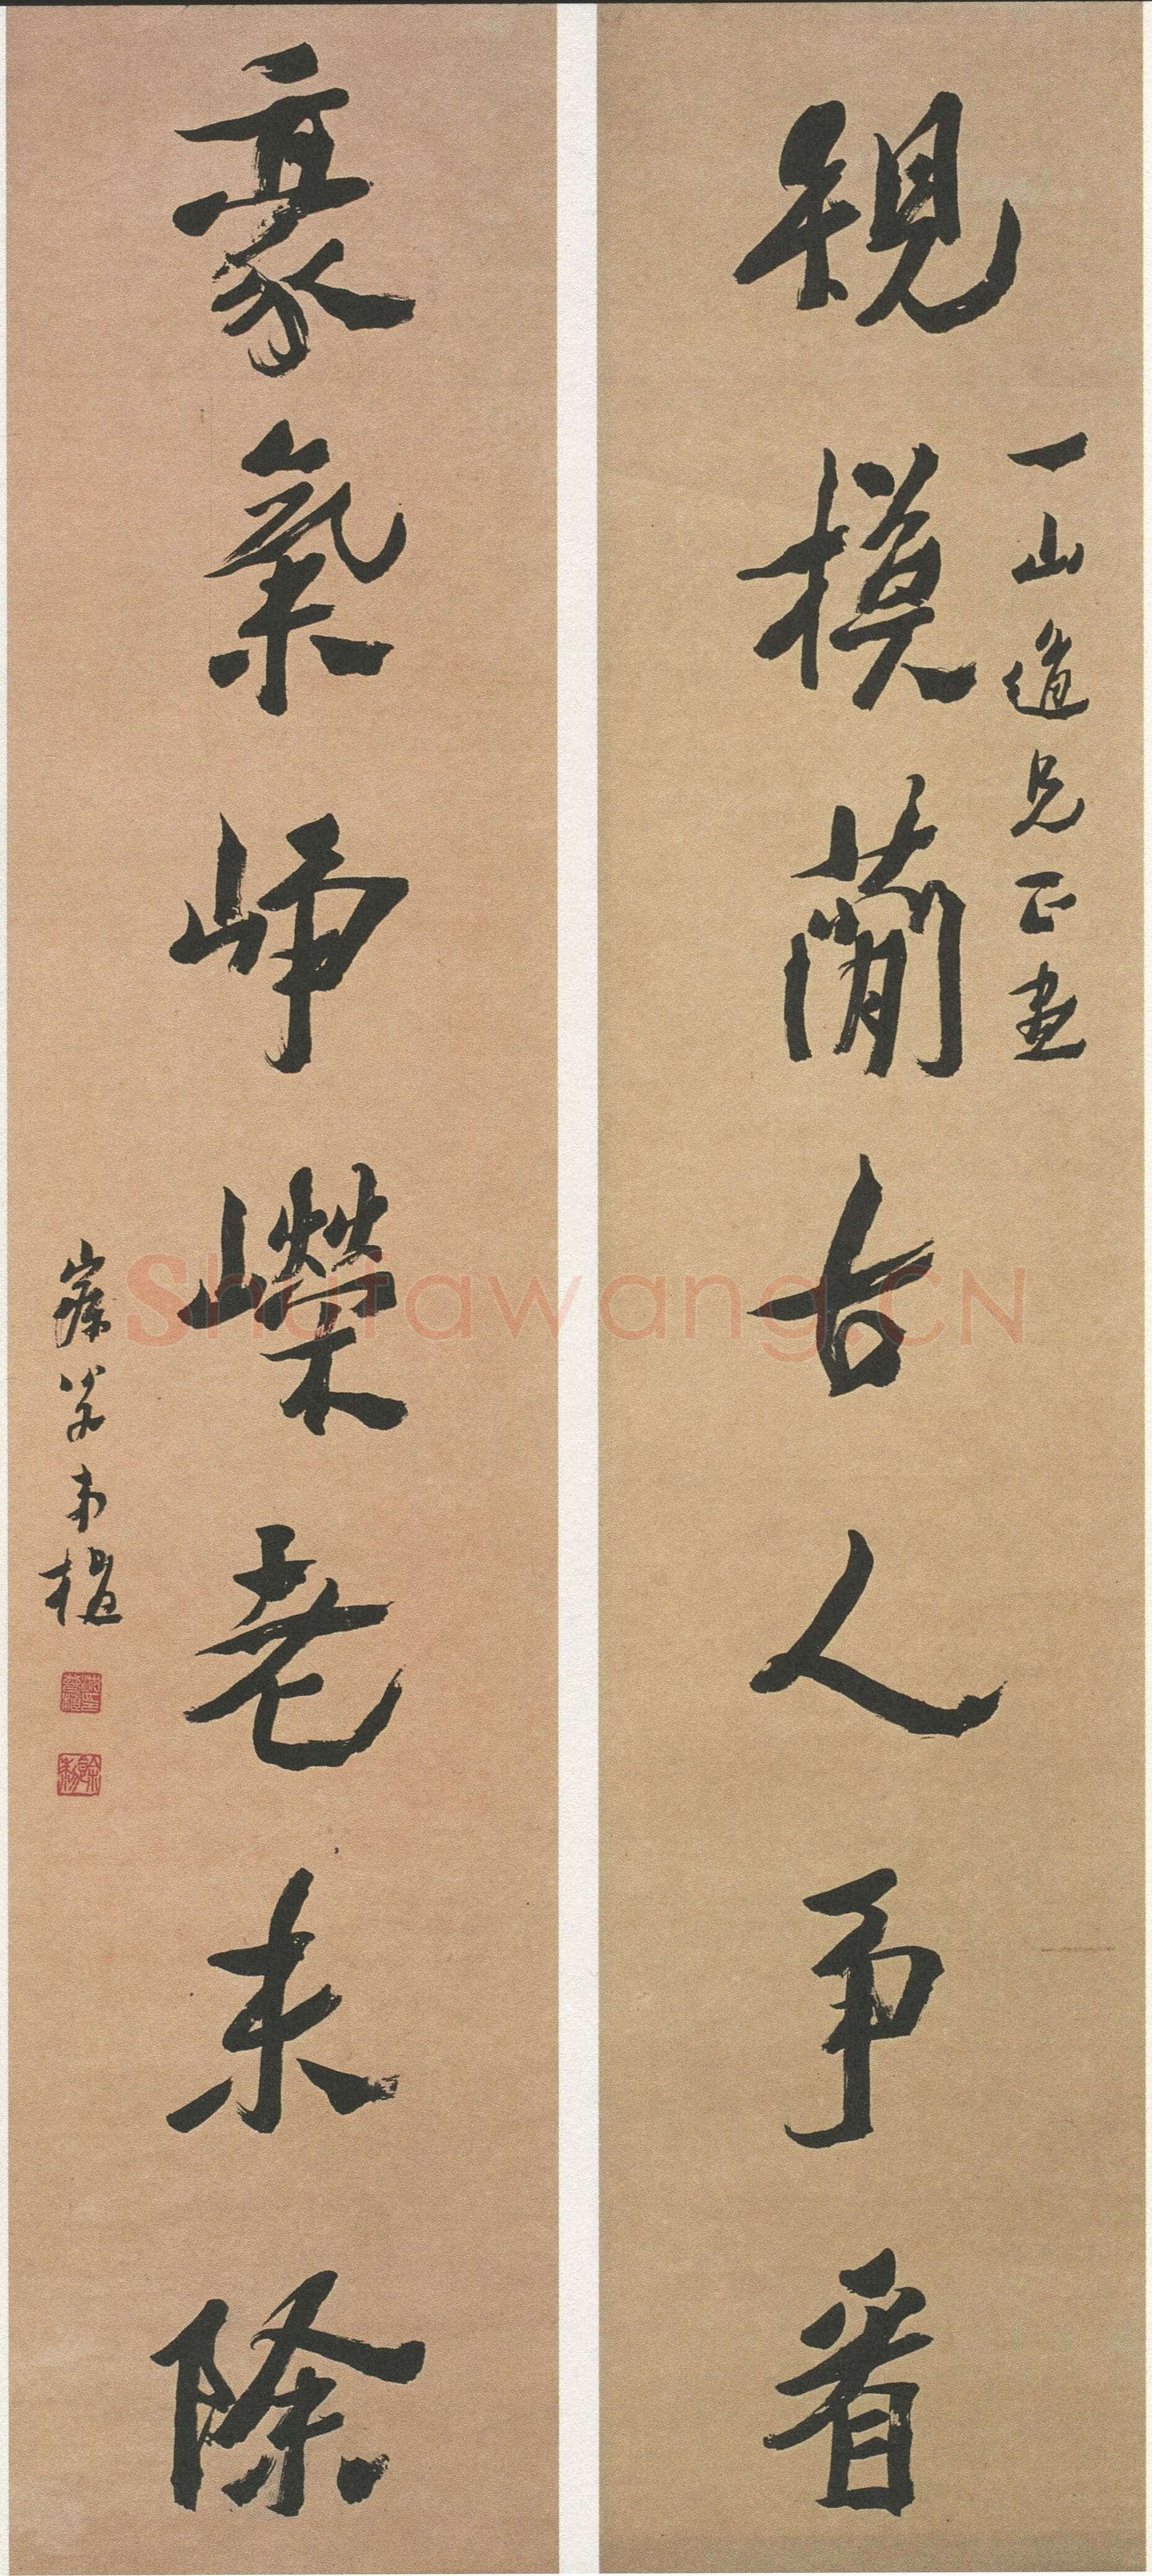 一山道兄正畫
規模簡古人争看
豪氣崢嶸老未除
寐叟弟植
Shufawang.CN